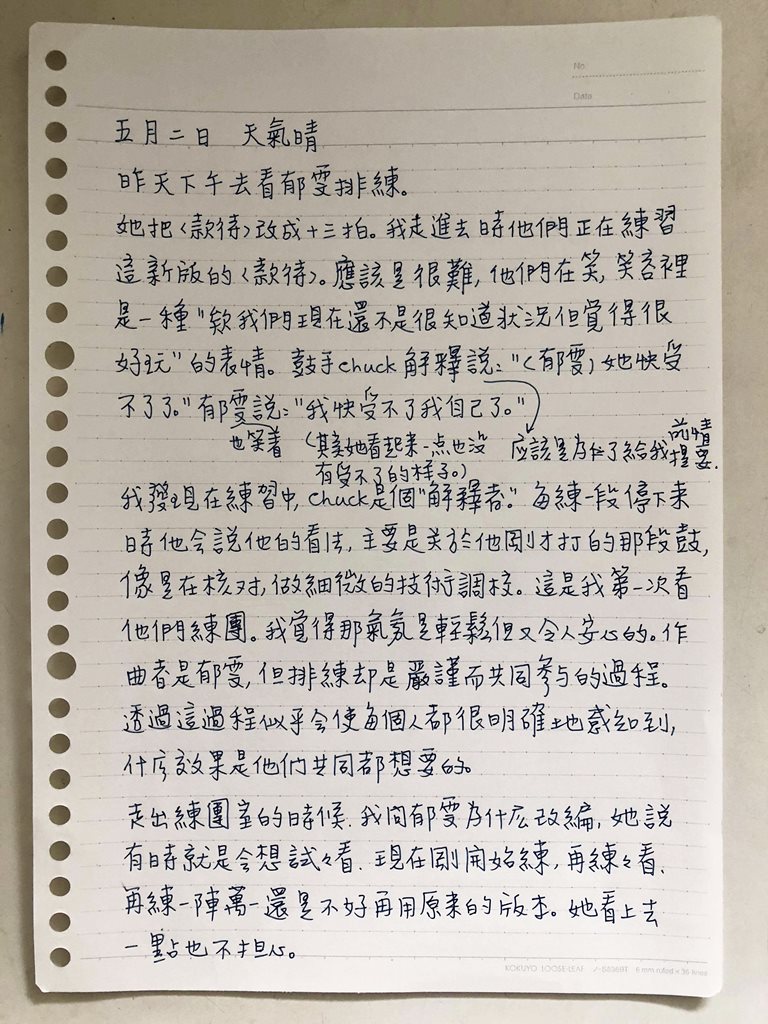 No.
Date
五月二日　天氣晴
昨天下午去看郁雯排練。
她把〈款待〉改成十三拍。我走進去時他們正在練習
這新版的〈款待〉。應該是很難,他們在笑,笑容裡
是一種"欸我們現在還不是很知道狀況但覺得很
好玩"的表情。鼓手chuck解釋說:"(郁雯)她快受
不了了。"郁雯說:"我快受不了我自己了。"
也笑著 (其實她看起來一点也沒 应該是為了給我前情
有受不了的樣子。) 提要.
我發現在練習中,chuck是個"解釋者"。每練一段停下來
時他会說他的看法,主要是关於他剛才打的那段鼓,
像是在核对,做細微的技術調校。這是我第一次看
他們練團。我覚得那氣氛是輕鬆但又令人安心的。作
曲者是郁雯,但排練却是嚴謹而共同參与的過程。
透過這過程似乎会使每個人都很明確地感知到,
什么效果是他們共同都想要的。
走出練團室的時候.我问郁雯為什么改編,她說
有時就是会想試々看.現在剛開始練,再練々看.
再練一陣萬一還是不好再用原來的版本。她看上去
一點也不担心。
KOKUYO LOOSE-LEAF ノ-S836BT 6 mm ruled × 36 lines